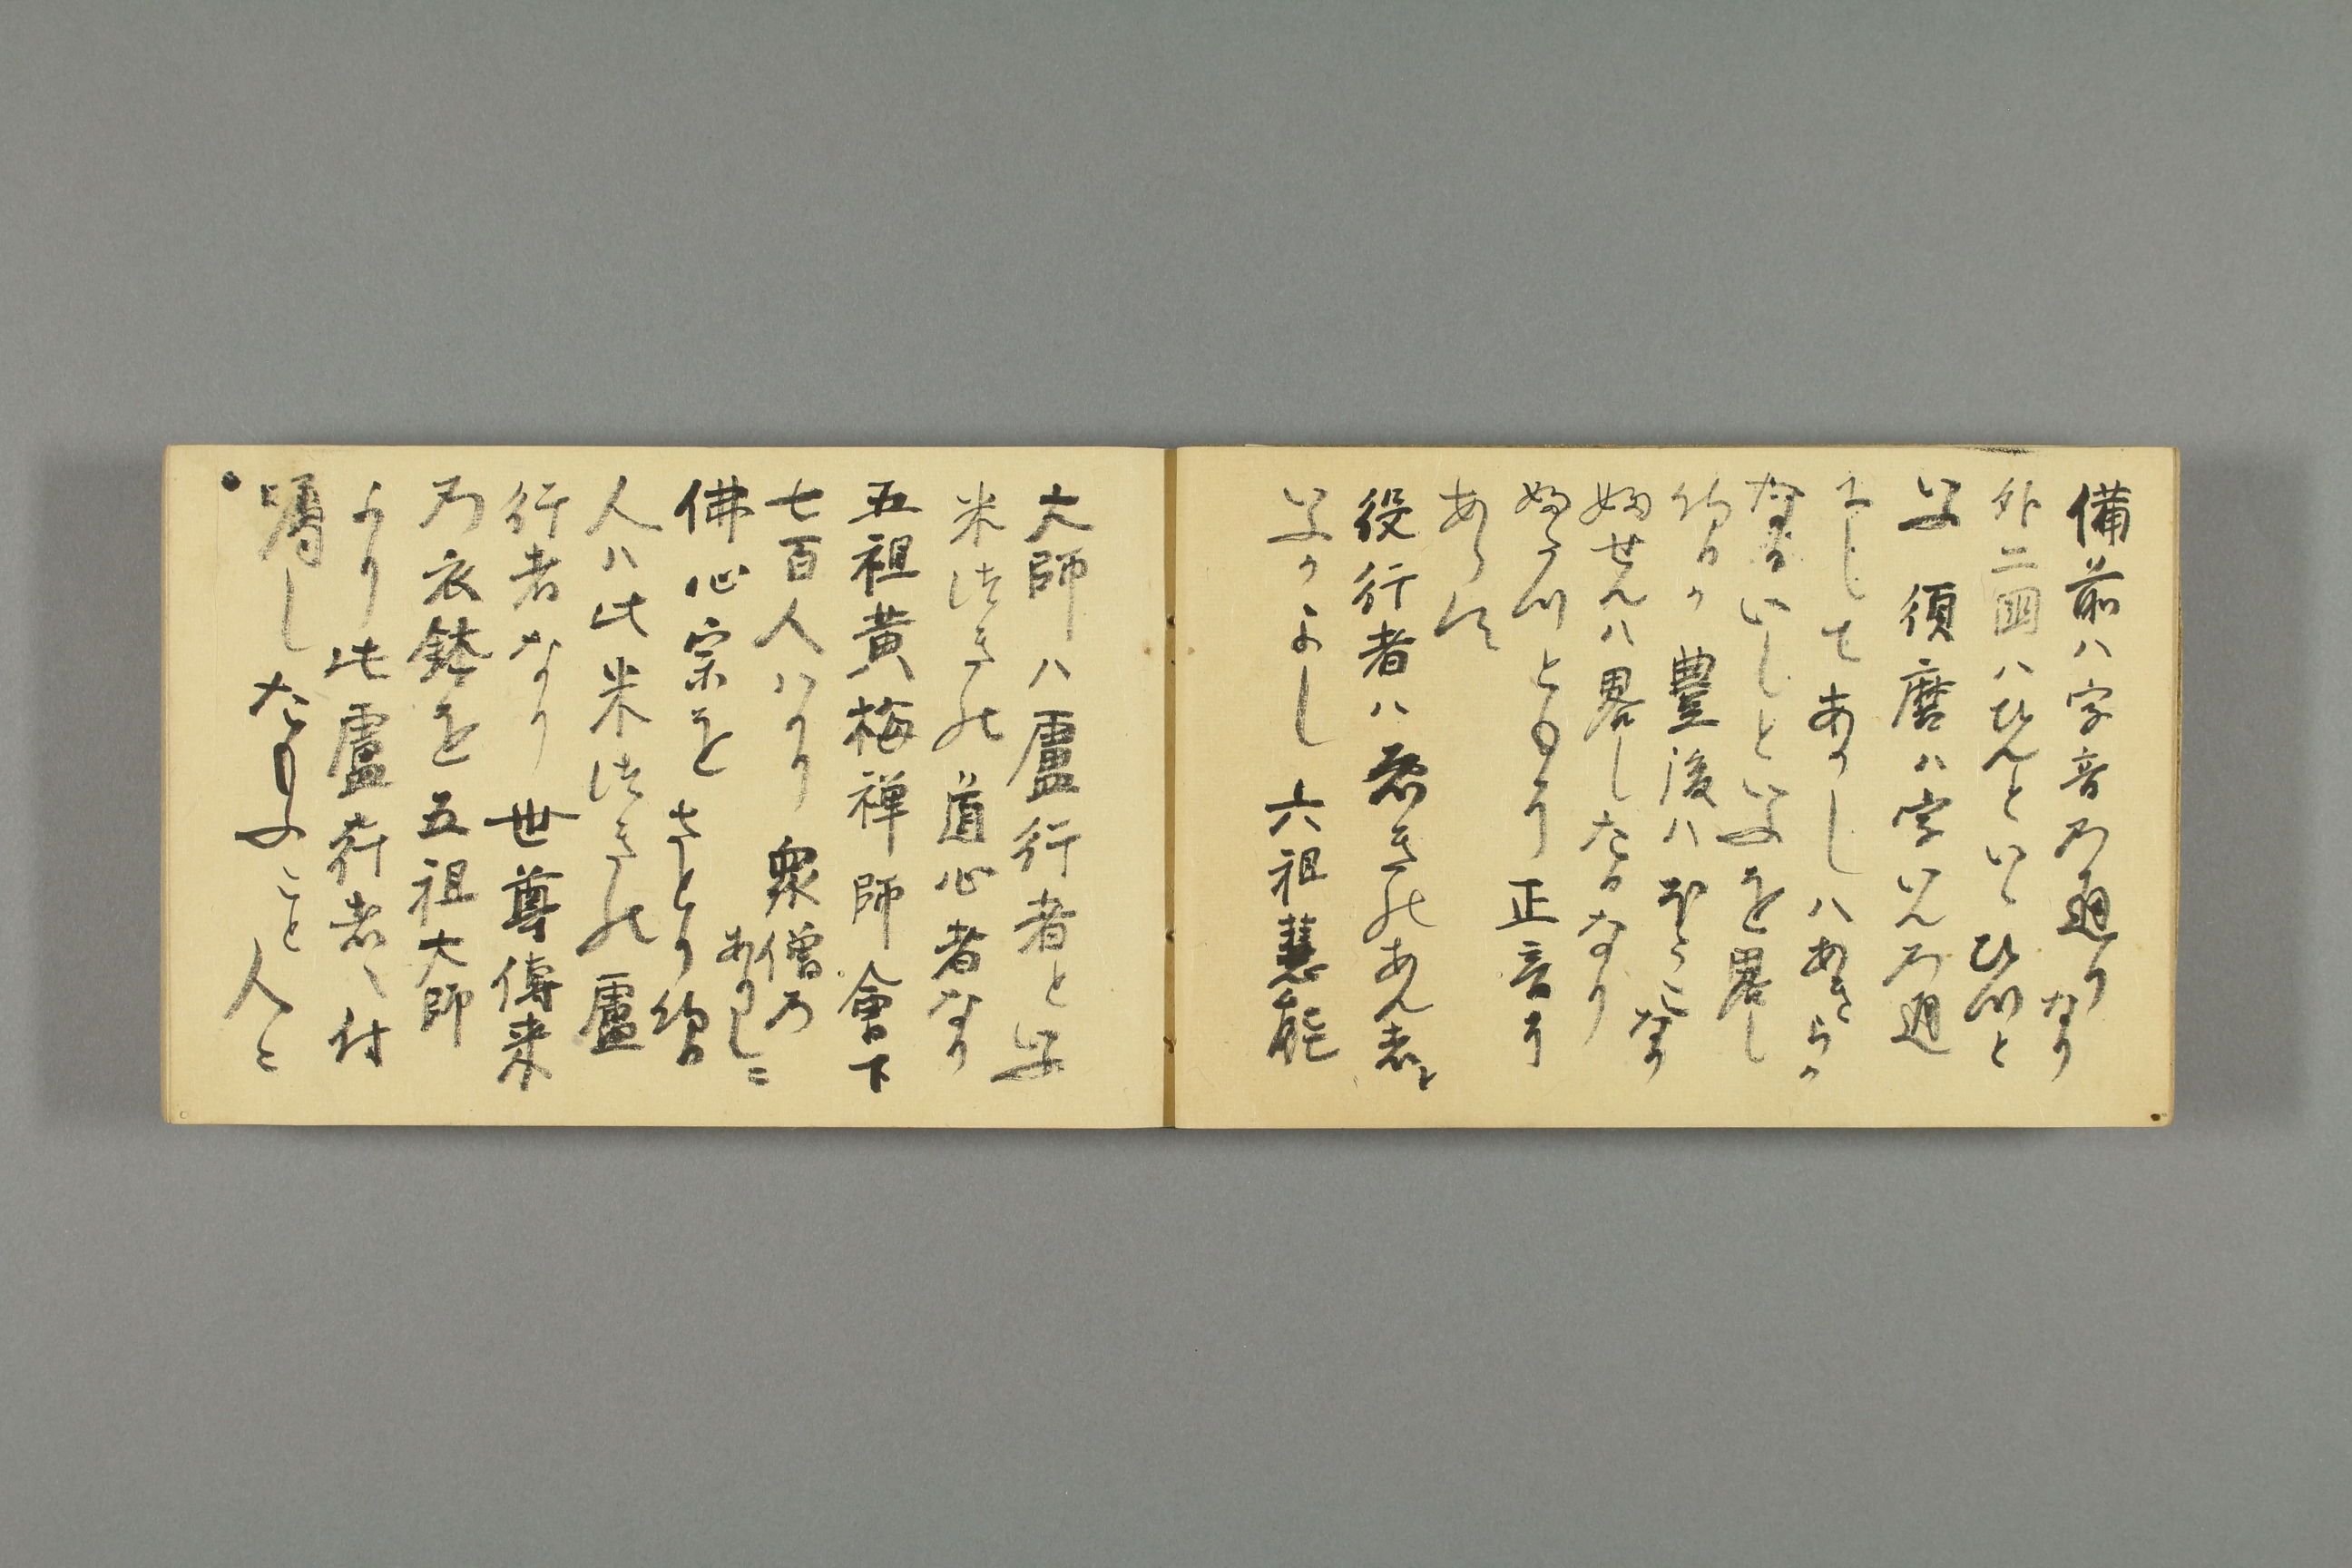 備前ハ字音乃通りなり
外二国ハひんといひひつと
いふ 須磨ハ字いん乃通
にしてあかしハあきらか
なるいしといふを略し
給るか 豊後ハぶんごなり
せんハ略したるなり
とあり 正音に
あらす
役行者ハ えきのあん者と
いふかよし 六祖慧能
大師ハ盧行者といふ
米つきの道心者なり
五祖黄梅禅師會下
七百人ハかり 衆僧乃
ありしニ
佛心宗をさとり給る
人ハ此米つきの盧
行者なり 世尊傳来
乃衣鉢を五祖大師
より此盧行者へ付
嘱したまふこと人と